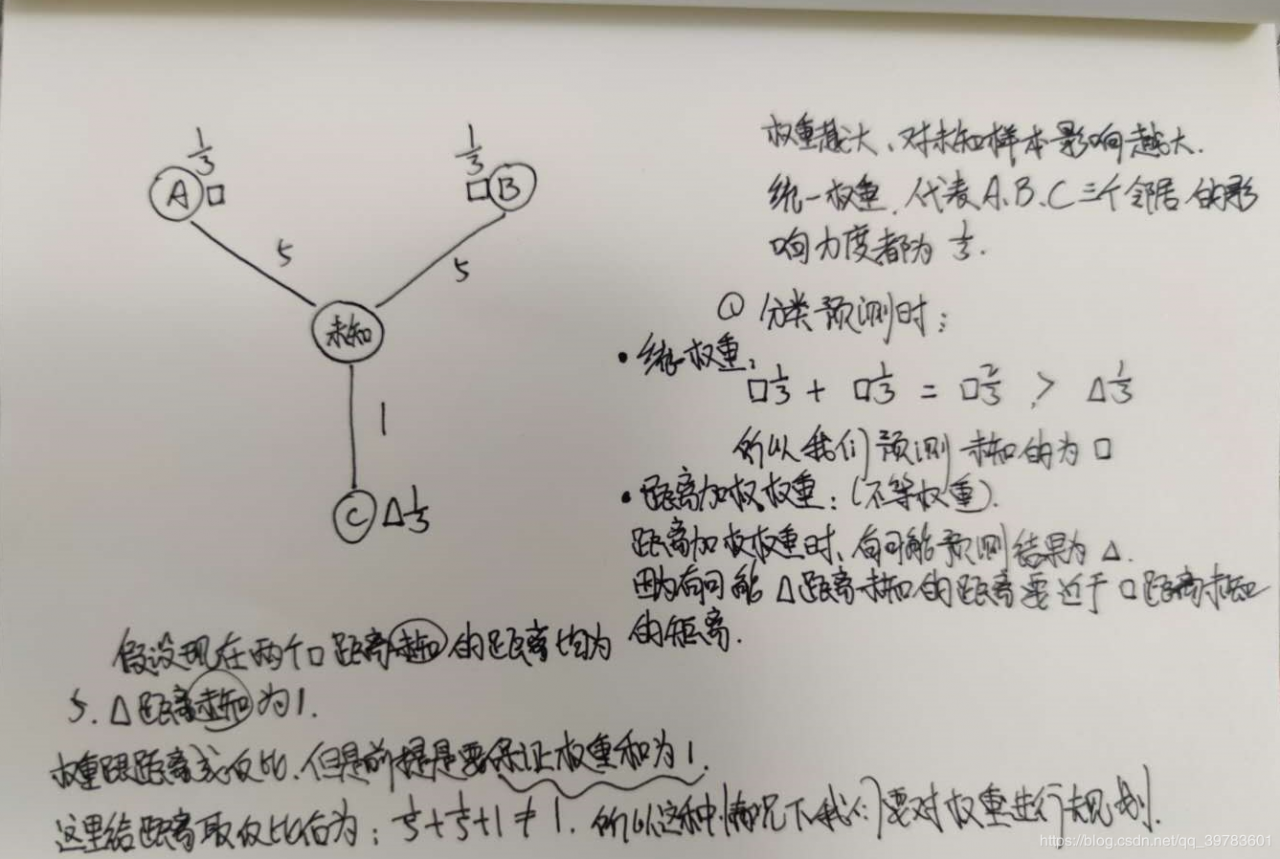 1/3
1/3
A □
□ B
5
5
未知
1
C △ 1/3
权重越大、对未知样本影响越大.
统一权重、代表A、B、C三个邻居的影
响力度都为 1/3.
① 分类预测时:
• 统一权重:
□1/3 + □1/3 = □2/3 > △1/3
所以我们预测未知的为□
• 距离加权权重:(不等权重).
距离加权权重时、有可能预测结果为△.
因为有可能△距离未知的距离要近于□距离未知
的距离.
假设现在两个□距离未知的距离均为
5. △距离未知为1.
权重跟距离成反比、但是前提是要保证权重和为1.
这里给距离取反比后为: 1/5+1/5+1≠1. 所以这种情况下我们要对权重进行规划.
https://blog.csdn.net/qq_39783601